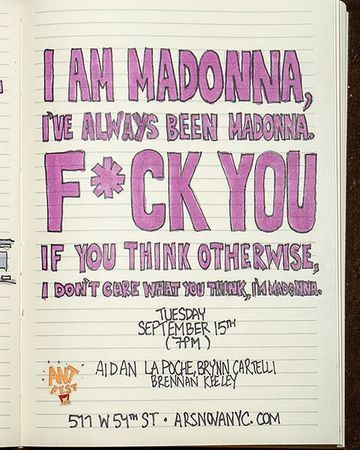 I AM MADONNA,
I'VE ALWAYS BEEN MADONNA.
F*CK YOU
IF YOU THINK OTHERWISE,
I DON'T CARE WHAT YOU THINK, I'M MADONNA.
TUESDAY
SEPTEMBER 15TH
(7PM)
ANT
FEST
AIDAN LA POCHE, BRYNN CARTELLI
BRENNAN KEELEY
511 W 54TH ST · ARSNOVANYC.COM